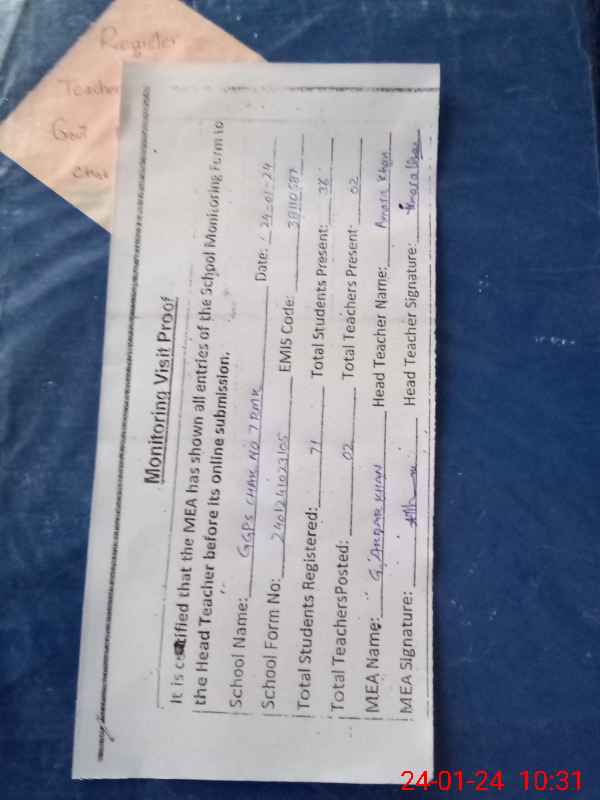 Register
Teacher
Govt
Chak
Monitoring Visit Proof
It is certified that the MEA has shown all entries of the School Monitoring Form to
the Head Teacher before its online submission.
School Name: GGPS CHAK NO 7 RMK Date: 24-01-24
School Form No: 2401241023105 EMIS Code: 38110587
Total Students Registered: 71 Total Students Present: 38
Total TeachersPosted: 02 Total Teachers Present: 02
MEA Name: KHAN Head Teacher Name: Khan
MEA Signature: Head Teacher Signature:
24-01-24 10:31